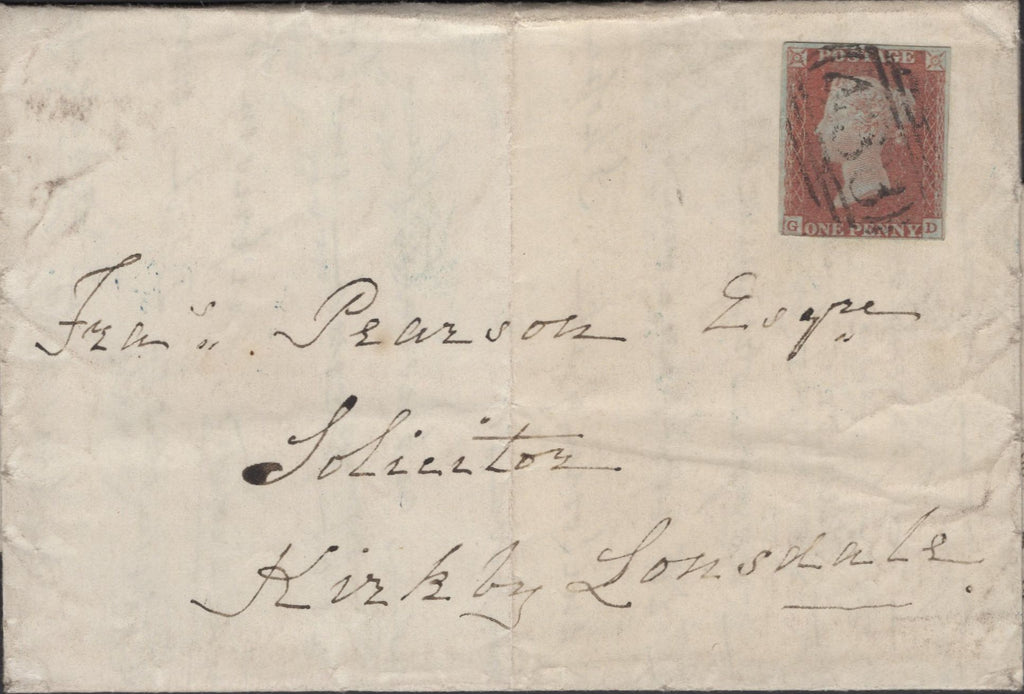 POSTAGE
G ONE PENNY D
Fra.s Pearson Esqre
Solicitor
Kirkby Lonsdale.